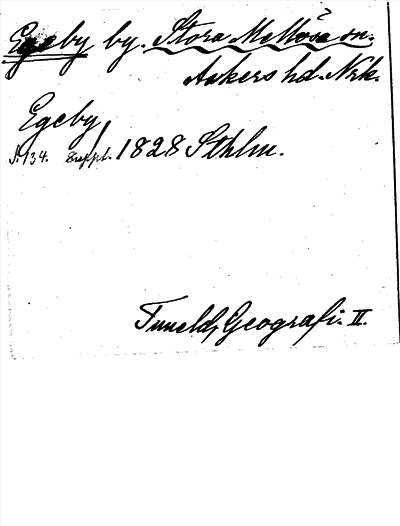 Egeby by. Stora Mellösa sn.
Askers hd. Nrk.
Egeby
S. 134. 8 uppl. 1828 Sthlm.
Tuneld, Geografi. II.